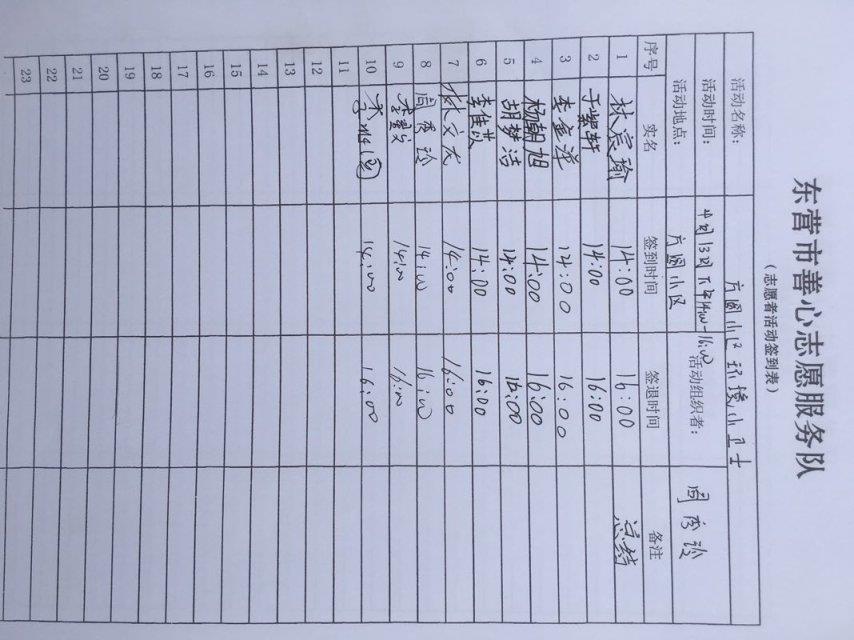 东营市善心志愿服务队
（志愿者活动签到表）
活动名称： 方圆小区环境小卫士
活动时间： 4月13日下午14:00-16:00 活动组织者： 周秀玲
活动地点： 方圆小区
序号 实名 签到时间 签退时间 备注
1 林宸瑜 14:00 16:00 总结
2 于紫轩 14:00 16:00
3 14:00 16:00
4 杨朝旭 14:00 16:00
5 胡梦洁 14:00 16:00
6 李佳苡 14:00 16:00
7 林文友 14:00 16:00
8 周秀玲 14:00 16:00
9 14:00 16:00
10 14:00 16:00
11
12
13
14
15
16
17
18
19
20
21
22
23